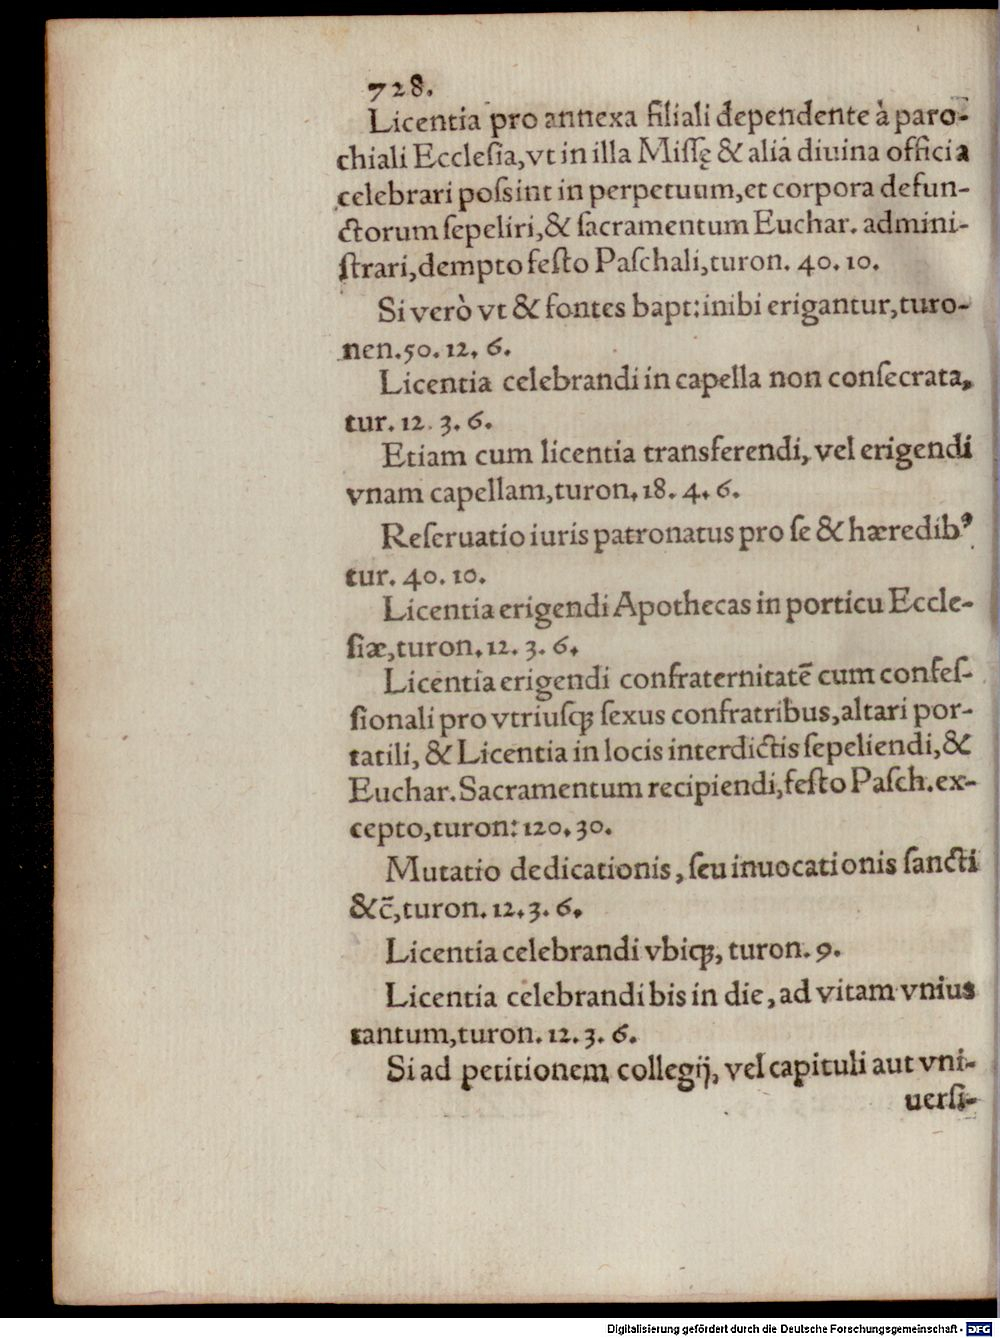 728.
Licentia pro annexa filiali dependente à paro-
chiali Ecclesia,vt in illa Missę & alia diuina officia
celebrari possint in perpetuum,et corpora defun-
ctorum sepeliri,& sacramentum Euchar. admini-
strari,dempto festo Paschali,turon. 40. 10.
Si verò vt & fontes bapt:inibi erigantur,turo-
nen.50. 12. 6.
Licentia celebrandi in capella non consecrata,
tur. 12. 3. 6.
Etiam cum licentia transferendi, vel erigendi
vnam capellam,turon. 18. 4. 6.
Reseruatio iuris patronatus pro se & hæredibꝰ
tur. 40. 10.
Licentia erigendi Apothecas in porticu Eccle-
siæ,turon. 12. 3. 6.
Licentia erigendi confraternitatē cum confes-
sionali pro vtriusqꝫ sexus confratribus,altari por-
tatili, & Licentia in locis interdictis sepeliendi,&
Euchar. Sacramentum recipiendi,festo Pasch. ex-
cepto,turon: 120. 30.
Mutatio dedicationis, seu inuocationis sancti
&c̄,turon. 12. 3. 6.
Licentia celebrandi vbiqꝫ, turon. 9.
Licentia celebrandi bis in die, ad vitam vnius
tantum,turon. 12. 3. 6.
Si ad petitionem collegij, vel capituli aut vni-
uersi-
Digitalisierung gefördert durch die Deutsche Forschungsgemeinschaft - DFG